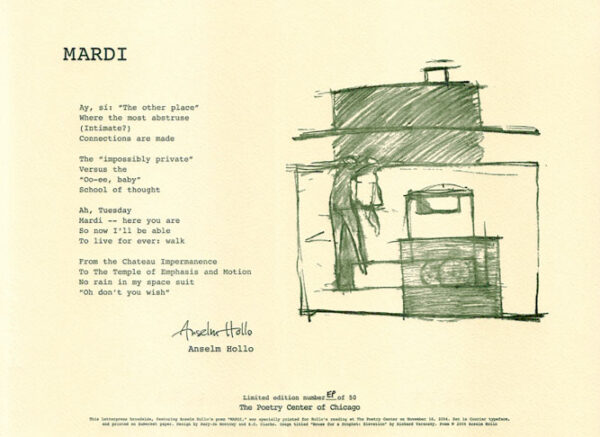 MARDI
Ay, sí: "The other place"
Where the most abstruse
(Intimate?)
Connections are made
The "impossibly private"
Versus the
"Oo-ee, baby"
School of thought
Ah, Tuesday
Mardi -- here you are
So now I'll be able
To live for ever: walk
From the Chateau Impermanence
To The Temple of Emphasis and Motion
No rain in my space suit
"Oh don't you wish"
Anselm Hollo
Anselm Hollo
Limited edition number EP of 50
The Poetry Center of Chicago
This letterpress broadside, featuring Anselm Hollo's poem "MARDI," was specially printed for Hollo's reading at The Poetry Center on November 2004. Set in Courier typeface,
and printed on paper. Design by and Image titled "House for a Prophet: Elevation" by Richard Poem © 2004 Anselm Hollo